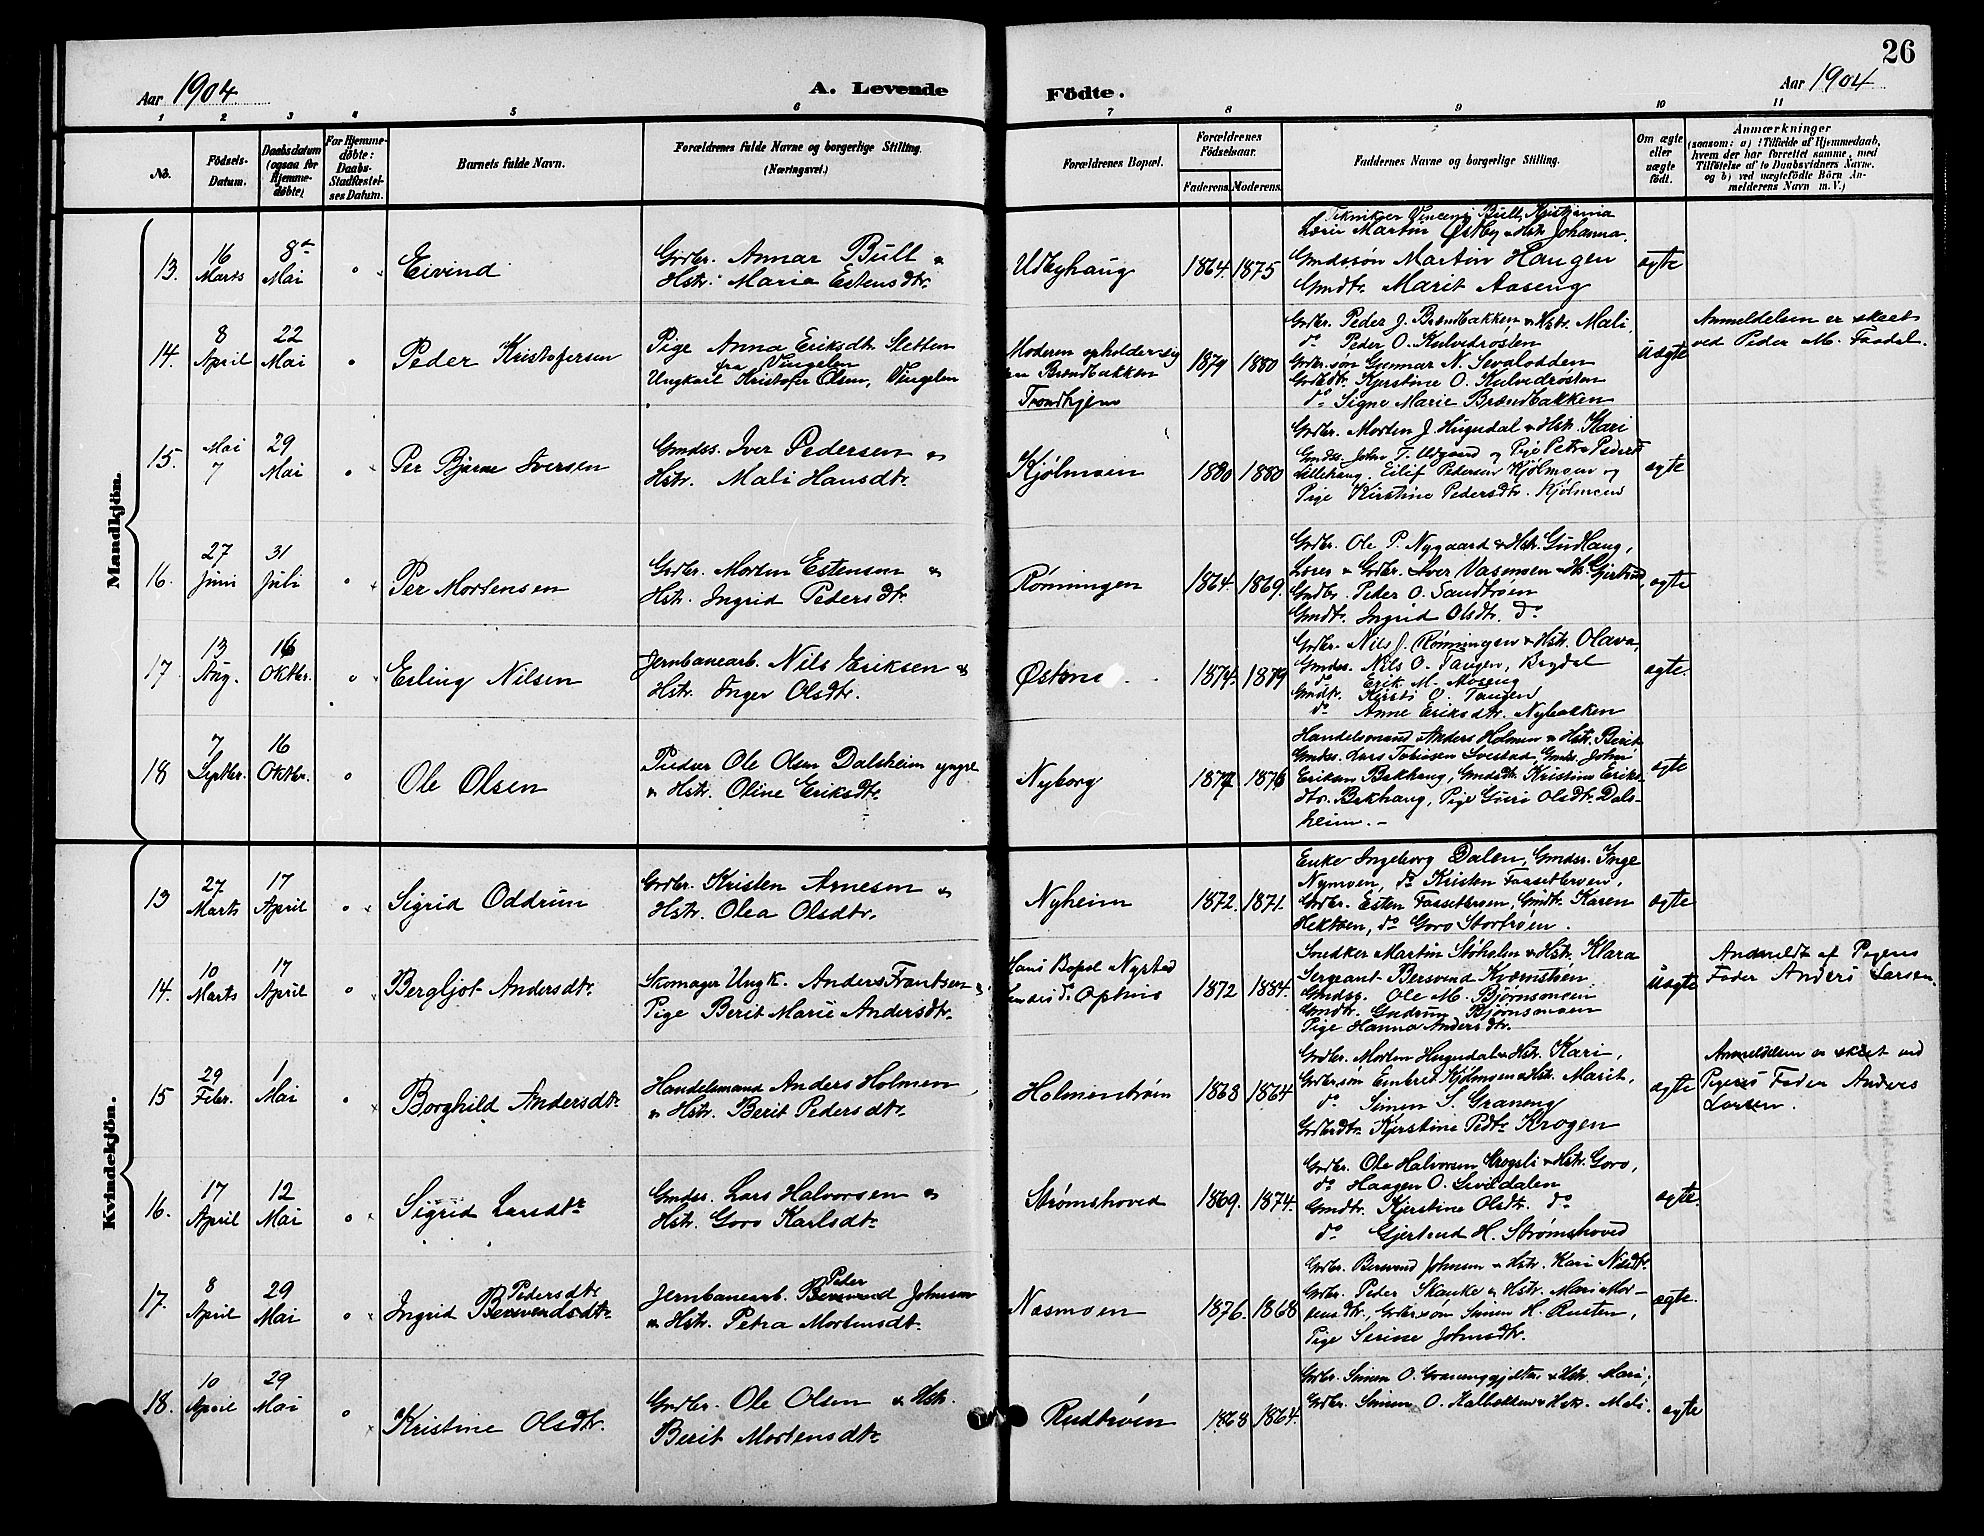 26
Aar 1904. A. Levende Födte. Aar 1904
1 2 3 4 5 6 7 8 9 10 11
No.
Födsels-
Datum.
Daabsdatum
(ogsaa for
Hjemme-
döbte)
For Hjemme-
döbte:
Daabs-
Stadfæstel-
ses Datum.
Barnets fulde Navn.
Forældrenes fulde Navne og borgerlige Stilling.
(Næringsvei.)
Forældrenes Bopæl.
Forældrenes
Födselsaar.
Faderens. Moderens.
Faddernes Navne og borgerlige Stilling.
Om ægte
eller
uægte
födt.
Anmærkninger
(saasom: a) i Tilfælde af Hjemmedaab,
hvem der har forrettet samme, med
Tilföielse af to Daabsvidners Navne.
og b) ved uægtefödte Börn An-
melderens Navn m. V.)
Mandkjön.
13.
16
Marts
8de
Mai
Eivind
Grdbr. Annar Bull &
Hstr. Maria Estensdtr.
Udbyhaug
1864. 1875
Tekniker Vincent Bull, Kristiania
Lærer Martin Østby & Hstr. Johanna.
Gmdssøn Martin Haugen
Gmdtr. Marit Aaseng
ægte
14.
8
April
22
Mai
Peder Kristofersen
Pige Anna Eriksdtr. Sletten
fra Vingelen
Ungkarl Kristofer Olsen, Vingelen
Moderen opholder sig
paa Brændbakken
Trondhjem
1879 1880
Grdbr. Peder J. Brændbakken & Hstr. Mali.
do Peder O. Kulvedrosten
Grdbr.søn Gunnar N. Sevalodden
Grdbdtr. Kjerstine O. Kulvedrøsten
do Signe Marie Brændbakken
Uægte
Anmeldelsen er skeet
ved Peder M. Faadal.
15.
Mai
7
29
Mai
Per Bjarne Iversen
Gmdss. Iver Pedersen &
Hstr. Mali Hansdtr.
Kjølmoen
1880 1880
Grdbr. Morten J. Hugudal & Hstr. Kari
Gmdss. John T. Udgaard og Pige Petra Pedersd.
Lillehaug, Eilif Pedersen Kjølmoen og
Pige Kirstine Pedersdtr. Kjølmoen
ægte
16.
27
Juni
31
Juli
Per Mortensen
Grdbr. Morten Estensen &
Hstr. Ingrid Pedersdtr.
Rønningen
1864. 1869.
Grdbr. Ole P. Nygaard & Hstr. Gudlaug,
Lærer & Grdbr. Iver Vasmoen & Hs. Gjertrud,
Gmdbr. Peder O. Sandtrøen
Gmdtr. Ingrid Olsdtr. do
ægte
17.
13
Aug.
16
Oktbr.
Erling Nilsen
Jernbanearb. Nils Eriksen &
Hstr. Inger Olsdtr.
1874. 1879
Grdbr. Nils J. Rønningen & Hstr. Olava,
Gmdss. Nils O. Taugen, Brydal
do Erik M. Moseng
Gmdtr. Kirsti O. Taugen
do Anne Eriksdtr. Nybakken
ægte.
18
7
Septbr.
16
Oktbr.
Ole Olsen
Pudser Ole Olsen Dalsheim yngre
& Hstr. Oline Eriksdtr.
Nyborg
1877 1876
Handelsmand Anders Holmen & Hstr. Berit
Gmdss. Lars Tobiasen Svestad, Gmds. John
Eriksen Bakhaug, Gmdsdtr. Kristine Eriks-
dtr. Bakhaug, Pige Guri Olsdtr. Dals-
heim. –
ægte
Kvindekjön.
13
27
Marts
17
April
Sigrid Oddrun
Grdbr. Kristen Arnesen &
Hstr. Olea Olsdtr.
Nyheim
1872. 1871.
Enke Ingeborg Dalen, Gmdss. Inge
Nymoen, do Kristen Fossettrøen,
Grdbr. Esten Fossettrøen, Gmdtr. Karen
Hektoen, do Goro Stortrøen.
ægte
14.
10
Marts
17
April
Bergljot Andersdtr.
Skomager Ungk. Anders Frantsen &
Pige Berit Marie Andersdtr.
Hans Bopæl Nystad
hendes do
1872 1884.
Snedker Martin Støholm & Hstr. Klara
Sergeant Bersvend Kværnstien
Gmdss. Ole M. Bjørnsmoen
Gmdtr. Gudrun Bjørnsmoen
Pige Hanna Andersdtr.
Uægte
Anmeldt af Pigens
Fader Anders Larsen.
15
29
Febr.
1
Mai
Borghild Andersdtr.
Handelsmand Anders Holmen
& Hstr. Berit Pedersdtr.
Holmentrøen
1868 1864
Grdbr. Morten Hugudal & Hstr. Kari,
Grdbr.søn Embret Kjølmoen & Hstr. Marit,
do Simen S. Graneng
Grdbrdtr. Kjerstine Pedtr. Krogen
ægte
Anmeldelsen er skeet ved
Pigens Fader Anders
Larsen.
16.
17
April
12
Mai
Sigrid Larsdtr
Gmdss. Lars Halvorsen &
Hstr. Goro Karlsdtr
Strømshoved
1869. 1874.
Grdbr. Ole Halvorsen Krogsli & Hstr. Goro,
do Haagen O. Livdalen
Gmdtr. Kjerstine Olsdtr. do
do Gjertrud H. Strømshoved
ægte.
17.
8
April
29
Mai
Pedersdtr
Ingrid Bersvendsdtr.
Peder
Jernbanearb. Bersvend Johnsen
& Hstr. Petra Mortensdtr.
Næsmoen
1876. 1868
Grdbr. Bersvend Johnsen & Hstr. Kari Nilsdtr.
Grdbr. Peder Skanke & Hstr. Mari Mor-
tensdtr, Grdbr.søn Simen H. Rusten,
Pige Serine Johnsdtr.
ægte.
18.
10
April
29
Mai
Kristine Olsdtr.
Grdbr. Ole Olsen & Hstr.
Berit Mortensdtr
Rudtrøen
1868 1864.
Grdbr. Simen O. Granenggjelten & Hstr. Mari,
Grdbr. Simen O. Kalbækken & Hstr. Mali.
ægte